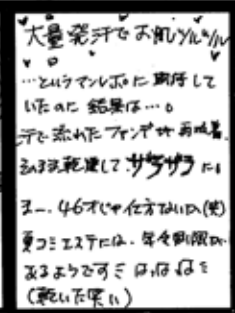 大量発汗でお肌ツルツル
…というマンレポに期待して
いたのに 結果は…。
汗で流れたファンデが再吸着。
そのまま乾燥して ザラザラに!
ま一、46才じゃ仕方ないか(笑)
夏コミエステには、年令制限が
あるようです ははは
(乾いた笑い)